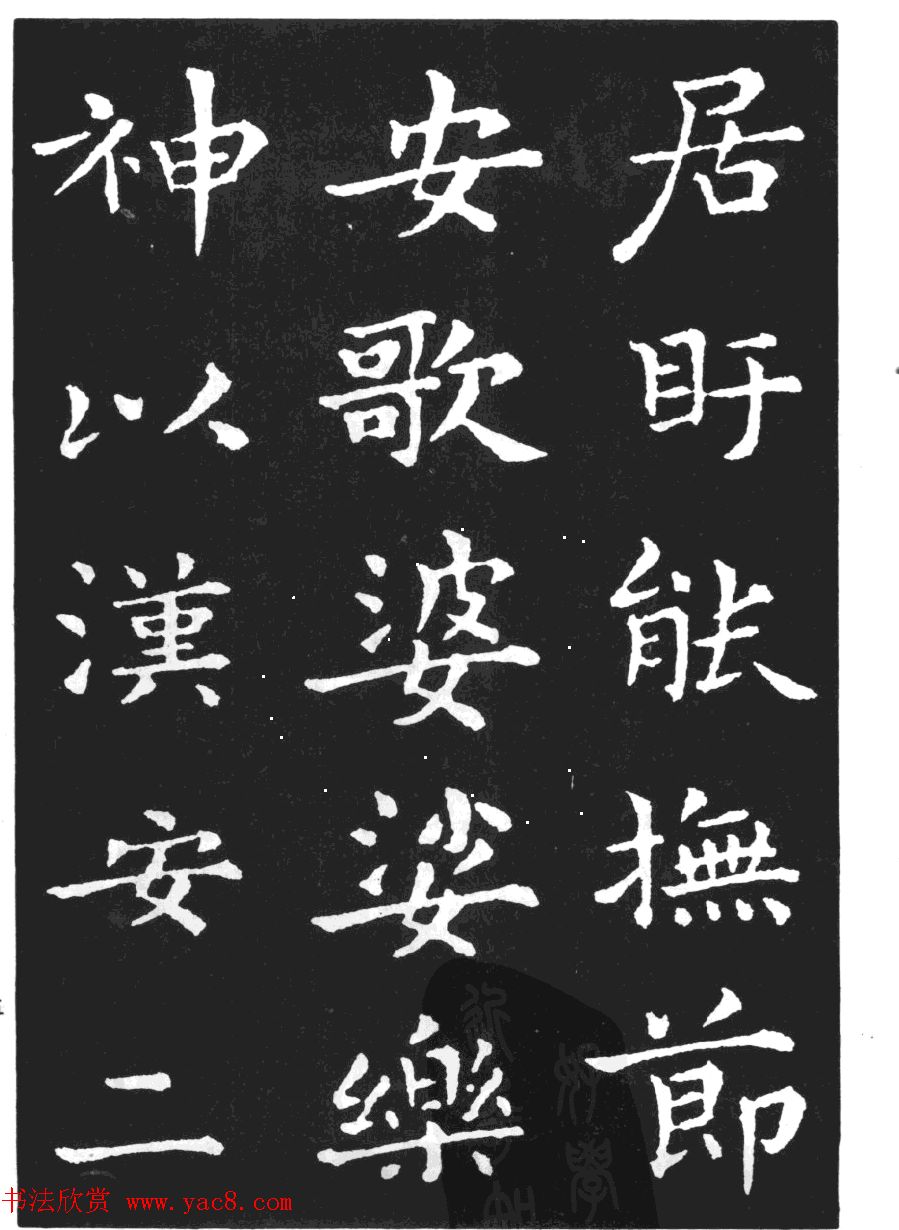 居盱能撫節
安歌婆娑樂
神以漢安二
书法欣赏 www.yac8.com